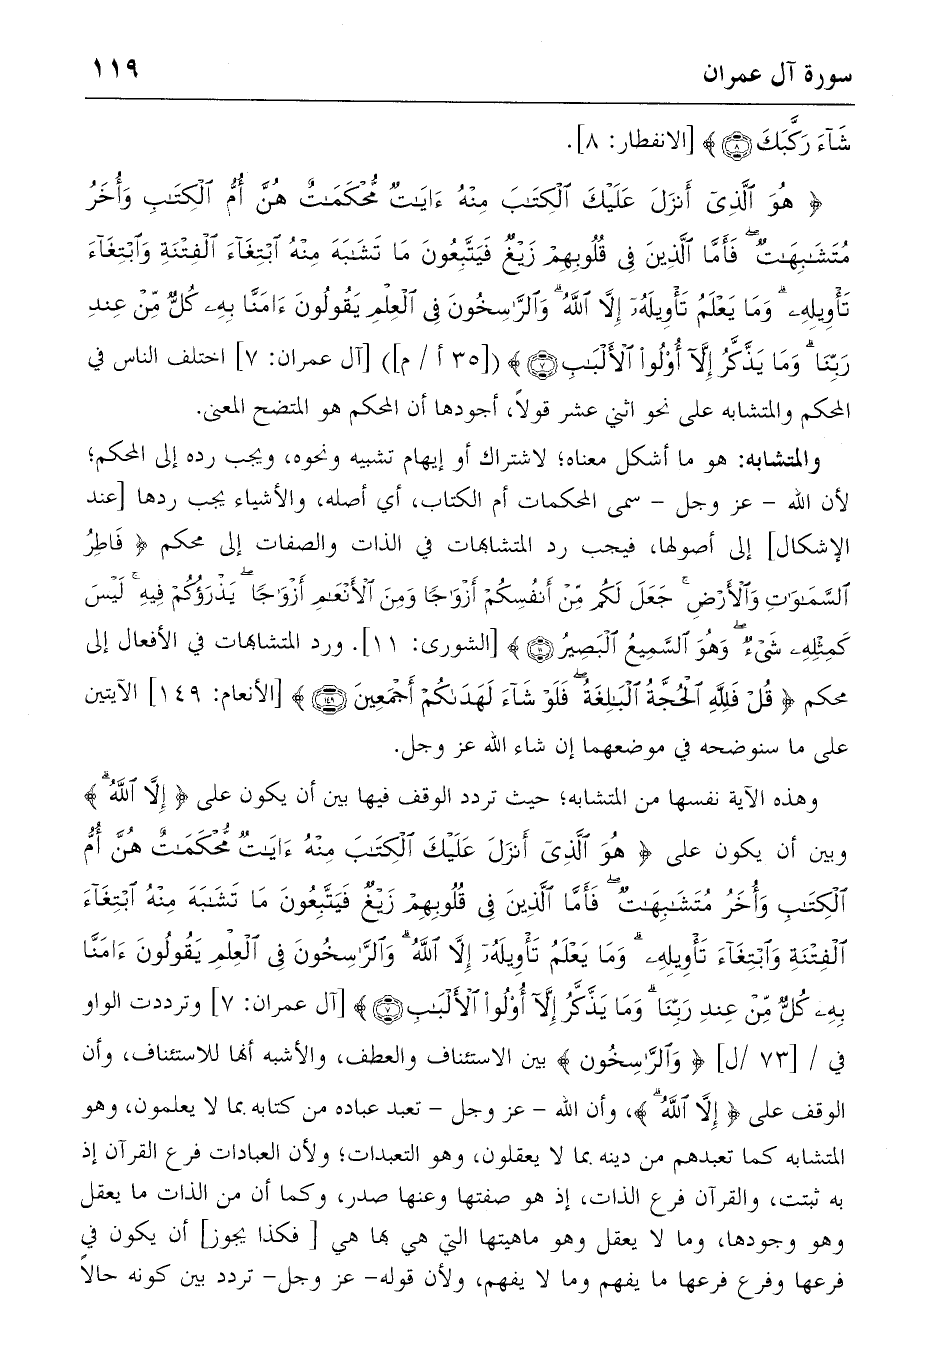 سورة آل عمران ١١٩
شَآءَ رَكَّبَكَ ﴿٨﴾ ﴾ [الانفطار: ٨].
﴿ هُوَ ٱلَّذِىٓ أَنزَلَ عَلَيْكَ ٱلْكِتَٰبَ مِنْهُ ءَايَٰتٌ مُّحْكَمَٰتٌ هُنَّ أُمُّ ٱلْكِتَٰبِ وَأُخَرُ
مُتَشَٰبِهَٰتٌ ۖ فَأَمَّا ٱلَّذِينَ فِى قُلُوبِهِمْ زَيْغٌ فَيَتَّبِعُونَ مَا تَشَٰبَهَ مِنْهُ ٱبْتِغَآءَ ٱلْفِتْنَةِ وَٱبْتِغَآءَ
تَأْوِيلِهِۦ ۗ وَمَا يَعْلَمُ تَأْوِيلَهُۥٓ إِلَّا ٱللَّهُ ۗ وَٱلرَّٰسِخُونَ فِى ٱلْعِلْمِ يَقُولُونَ ءَامَنَّا بِهِۦ كُلٌّ مِّنْ عِندِ
رَبِّنَا ۗ وَمَا يَذَّكَّرُ إِلَّآ أُو۟لُوا۟ ٱلْأَلْبَٰبِ ﴿٧﴾ ﴾ ([٣٥ أ / م]) [آل عمران: ٧] اختلف الناس في
المحكم والمتشابه على نحو اثني عشر قولاً، أجودها أن المحكم هو المتضح المعنى.
والمتشابه: هو ما أشكل معناه؛ لاشتراك أو إيهام تشبيه ونحوه، ويجب رده إلى المحكم؛
لأن الله - عز وجل - سمى المحكمات أم الكتاب، أي أصله، والأشياء يجب ردها [عند
الإشكال] إلى أصولها، فيجب رد المتشابهات في الذات والصفات إلى محكم ﴿ فَاطِرُ
ٱلسَّمَٰوَٰتِ وَٱلْأَرْضِ ۚ جَعَلَ لَكُم مِّنْ أَنفُسِكُمْ أَزْوَٰجًا وَمِنَ ٱلْأَنْعَٰمِ أَزْوَٰجًا ۖ يَذْرَؤُكُمْ فِيهِ ۚ لَيْسَ
كَمِثْلِهِۦ شَىْءٌ ۖ وَهُوَ ٱلسَّمِيعُ ٱلْبَصِيرُ ﴿١١﴾ ﴾ [الشورى: ١١]. ورد المتشابهات في الأفعال إلى
محكم ﴿ قُلْ فَلِلَّهِ ٱلْحُجَّةُ ٱلْبَٰلِغَةُ ۖ فَلَوْ شَآءَ لَهَدَىٰكُمْ أَجْمَعِينَ ﴿١٤٩﴾ ﴾ [الأنعام: ١٤٩] الآيتين
على ما سنوضحه في موضعهما إن شاء الله عز وجل.
وهذه الآية نفسها من المتشابه؛ حيث تردد الوقف فيها بين أن يكون على ﴿ إِلَّا ٱللَّهُ ۗ ﴾
وبين أن يكون على ﴿ هُوَ ٱلَّذِىٓ أَنزَلَ عَلَيْكَ ٱلْكِتَٰبَ مِنْهُ ءَايَٰتٌ مُّحْكَمَٰتٌ هُنَّ أُمُّ
ٱلْكِتَٰبِ وَأُخَرُ مُتَشَٰبِهَٰتٌ ۖ فَأَمَّا ٱلَّذِينَ فِى قُلُوبِهِمْ زَيْغٌ فَيَتَّبِعُونَ مَا تَشَٰبَهَ مِنْهُ ٱبْتِغَآءَ
ٱلْفِتْنَةِ وَٱبْتِغَآءَ تَأْوِيلِهِۦ ۗ وَمَا يَعْلَمُ تَأْوِيلَهُۥٓ إِلَّا ٱللَّهُ ۗ وَٱلرَّٰسِخُونَ فِى ٱلْعِلْمِ يَقُولُونَ ءَامَنَّا
بِهِۦ كُلٌّ مِّنْ عِندِ رَبِّنَا ۗ وَمَا يَذَّكَّرُ إِلَّآ أُو۟لُوا۟ ٱلْأَلْبَٰبِ ﴿٧﴾ ﴾ [آل عمران: ٧] وترددت الواو
في / [٧٣ /ل] ﴿ وَٱلرَّٰسِخُونَ ﴾ بين الاستئناف والعطف، والأشبه أنها للاستئناف، وأن
الوقف على ﴿ إِلَّا ٱللَّهُ ۗ ﴾، وأن الله - عز وجل - تعبد عباده من كتابه بما لا يعلمون، وهو
المتشابه كما تعبدهم من دينه بما لا يعقلون، وهو التعبدات؛ ولأن العبادات فرع القرآن إذ
به ثبتت، والقرآن فرع الذات، إذ هو صفتها وعنها صدر، وكما أن من الذات ما يعقل
وهو وجودها، وما لا يعقل وهو ماهيتها التي هي بها هي [ فكذا يجوز] أن يكون في
فرعها وفرع فرعها ما يفهم وما لا يفهم، ولأن قوله- عز وجل- تردد بين كونه حالاً